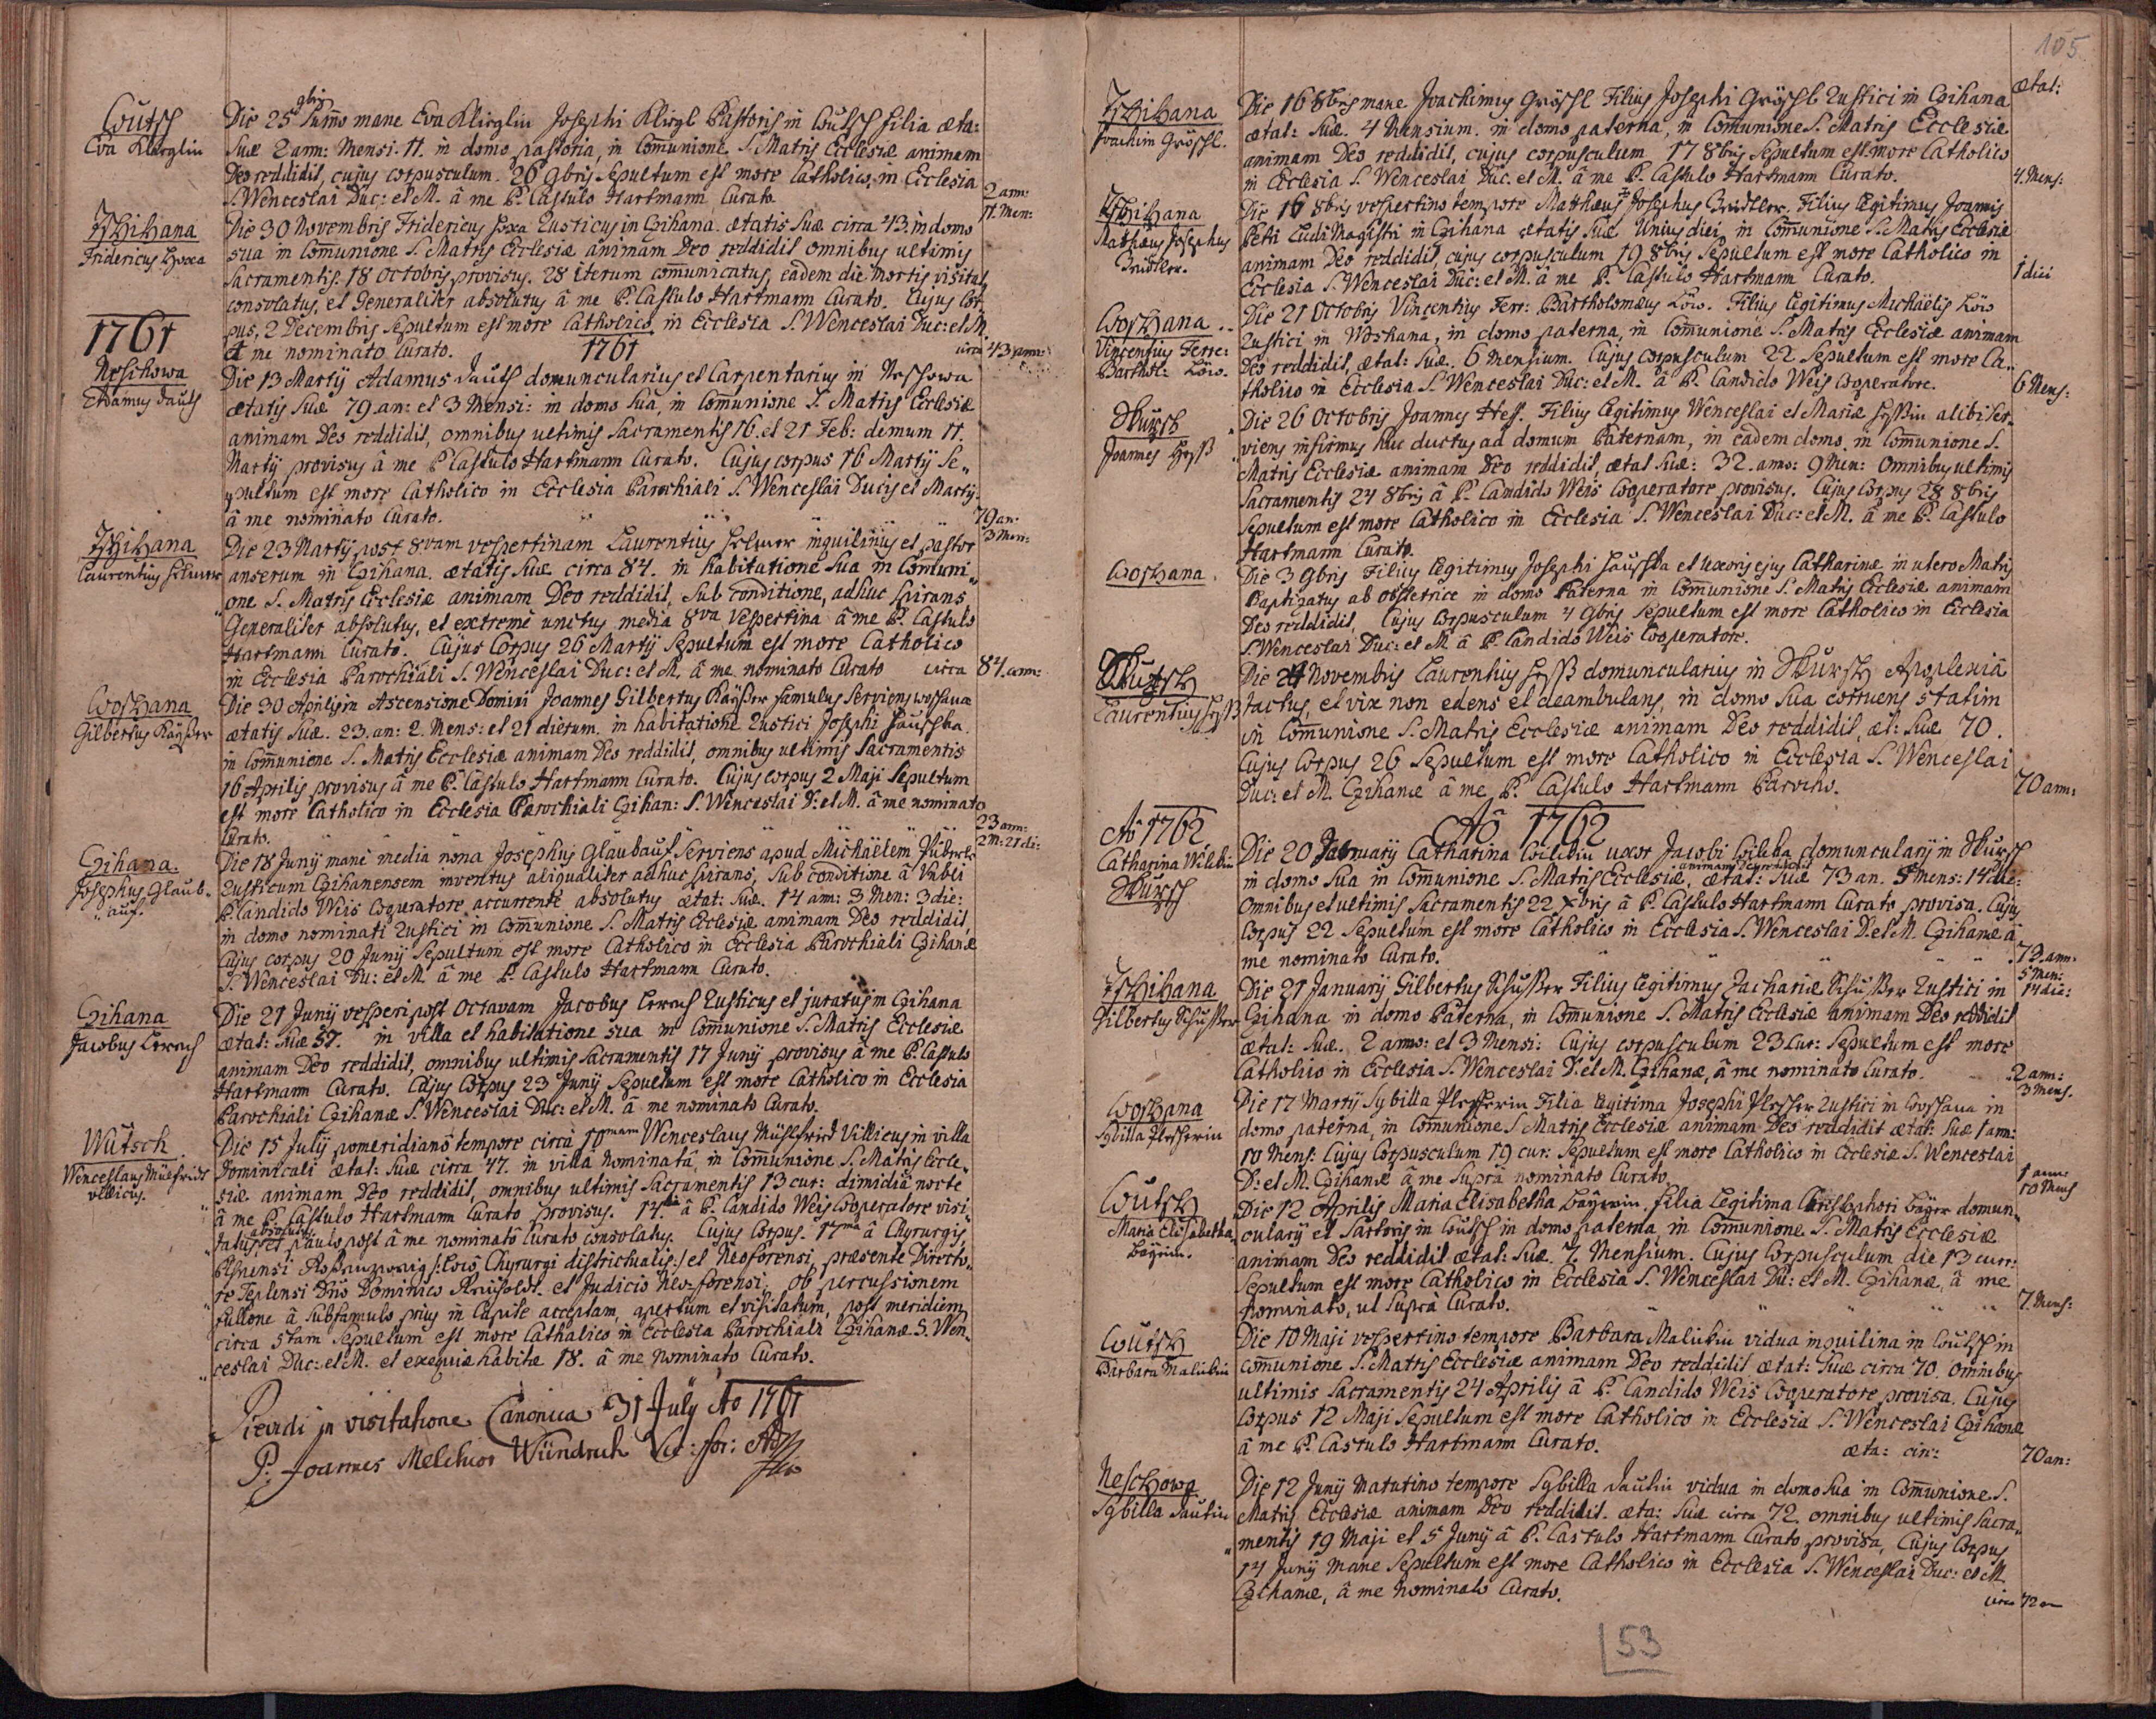 Wutsch
Eva Klirglin
Die 25 9bris Summo mane Eva Klirglin Josephi Klirgl Pastoris in Wutsch filia æta:
Suæ 2 ann: Mensi: 11. in domo pastoria, in Comunione S. Matris Ecclesiæ animam
Deo reddidit, cujus corpusculum 26 9bris Sepultum est more Catholico, in Ecclesia
S. Wenceslai Duc: et M. à me P. Castulo Hartmann Curato.
2 ann:
11. Men:
Tschihana
Fridericus Hoxa
Die 30 Novembris Fridericus Hoxa Rusticus in Czihana ætatis Suæ circa 43. in domo
sua in Comunione S. Matris Ecclesiæ animam Deo reddidit omnibus ultimis
Sacramentis 18 Octobris provisus. 28 iterum comunicatus, eadem die mortis visitat,
consolatus, et generaliter absolutus â me P. Castulo Hartmann Curato. Cujus Cor-
pus, 2 Decembris Sepultum est more Catholico, in Ecclesia S. Wenceslai Duc: et M.
â me nominato Curato.
circa 43 ann:
1761
1761
Neschowa
Adamus Dauth
Die 13 Martÿ Adamus Dauth domuncularius et Carpentarius in Neschowa
ætatis Suæ 79. an: et 3 Mensi: in domo Suâ, in Comunione S. Matris Ecclesiæ
animam Deo reddidit, omnibus ultimis Sacramentis 16. et 21 Feb: demum 11.
Martÿ provisus â me P. Castulo Hartmann Curato. Cujus corpus 16 Martÿ Se„
pultum est more Catholico in Ecclesia Parochiali S. Wenceslai Ducis et Martÿ.
â me nominato Curato.
79 an:
3 Men:
Tschihana
Laurentius
Die 23 Martÿ post 8vam vespertinam Laurentius inquilinus et pastor
anserum in Czihana. ætatis Suæ circa 84. in habitatione Sua in Comuni„
one S. Matris Ecclesiæ animam Deo reddidit, Sub conditione, adhuc spirans
Generaliter absolutus, et extremè unctus media 8va Vespertina â me P. Castulo
Hartmann Curato. Cujus Corpus 26 Martÿ Sepultum est more Catholico
in Ecclesia Parochiali S. Wenceslai Duc: et M. à me nominato Curato circa
84. ann:
Woshana
Gilbertus Käÿser
Die 30 Aprilis in Ascensione Domini Joannes Gilbertus Käÿser famulus Serviens
ætatis Suæ. 23. an: 2. Mens: et 21 dierum. in habitatione Rustici Josephi Hauska.
in Comunione S. Matris Ecclesiæ animam Deo reddidit, omnibus ultimis Sacramentis
16 Aprilis provisus â me P. Castulo Hartmann Curato. Cujus corpus 2 Maji Sepultum
est more Catholico in Ecclesia Parochiali Czihan: S. Wenceslai D: et M. â me nominato
Curato.
23 ann:
2 M: 21 di:
Czihana.
Josephus Glaub„
auf.
Die 18 Junÿ manè media nona Josephus Glaubauf Serviens apud Michaëlem
Rusticum Czihanensem inventus aliqualiter adhuc spirans, Sub conditione â
P. Candido Weis Cooperatore accurrente absolutus ætat: Suæ. 14 ann: 3 Men: 3 die:
in domo nominati Rustici in Comunione S. Matris Ecclesiæ animam Deo reddidit,
Cujus corpus 20 Junÿ Sepultum est more Catholico in Ecclesia Parochiali Czihanæ
S. Wenceslai Du: et M. â me P. Castulo Hartmann Curato.
Czihana
Jacobus Lerach
Die 21 Junÿ vesperi post Octavam Jacobus Lerach Rusticus et juratus in Czihana
ætat: Suæ 57. in villa et habitatione sua in Comunione S. Matris Ecclesiæ
animam Deo reddidit, omnibus ultimis Sacramentis 17 Junÿ provisus â me P. Castulo
Hartmann Curato. Cujus Corpus 23 Junÿ Sepultum est more Catholico in Ecclesia
Parochiali Czihanæ S. Wenceslai Duc: et M. â me nominato Curato.
Wutsch
Wenceslaus Mülfridt
villicus.
Die 15 Julÿ pomeridiano tempore circà 10mam Wenceslaus Mühlfridt Villicus in villa
Dominicali ætat: Suæ circa 47. in villâ Nominatâ, in Comunione S. Matris Eccle„
siæ animam Deo reddidit, omnibus ultimis Sacramentis 13 cur: dimidiâ nocte
â me P. Castulo Hartmann Curato provisus. 14. â P. Candido Weis Cooperatore visi„
tatus absolutus et paulo post â me nominato Curato consolatus. Cujus Corpus. 17ma â Chyrurgis,
Plsnensi Chyrurgi districtualis et Neoforensi, præsente Directo„
re Teplensi Dno Dominico et Judicio Neoforensi, ob percussionem
fullone â Subfamulo prius in Capite acceptam, apertum et visitatum, post meridiem
circa 5tam Sepultum est more Catholico in Ecclesia Parochiali Czihanæ S. Wen„
ceslai Duc: et M. et exequiæ habitæ 18. â me Nominato Curato.
Revidi in visitatione Canonica 31 Julÿ Ao 1761
P. Joannes Melchior Wündrich Vic: for:
105
ætat:
Tschihana
Joachim Gröschl.
Die 16 8bris mane Joachimus Gröschl Filius Josephi Gröschl Rustici in Czihana
ætat: Suæ. 4 Mensium. in domo paterna, in Comunione S. Matris Ecclesiæ
animam Deo reddidit, cujus corpusculum 17 8bris Sepultum est more Catholico
in Ecclesia S. Wenceslai Duc. et M. â me P. Castulo Hartmann Curato.
4. Mens:
Tschihana
Mathæus Josephus
Brudtler.
Die 16 8bris vespertino tempore Matthæus Josephus Brudtler. Filius legitimus Joannis
Petri Ludi Magistri in Czihana ætatis Suæ Unius diei, in Comunione S. Matris Ecclesiæ
animam Deo reddidit, cujus corpusculum 19 8bris Sepultum est more Catholico in
Ecclesia S. Wenceslai Duc: et M. â me P. Castulo Hartmann Curato.
1 diei
Woshana
Vincentius Ferre:
Barthol: Löw.
Die 21 Octobris Vincentius Ferr: Bartholomæus Löw. Filius Legitimus Michaëlis Löw
Rustici in Woshana, in domo paterna, in Comunione S. Matris Ecclesiæ animam
Deo reddidit, ætat: Suæ. 6 Mensium. Cujus corpusculum 22 Sepultum est more Ca„
tholico in Ecclesia S. Wenceslai Duc: et M. â P. Candido Weis Cooperatore.
6 Mens:
Joannes Heß
Die 26 Octobris Joannes Hess. Filius Legitimus Wenceslai et Mariæ Heßin alibi ser„
viens infirmus huc ductus ad domum Paternam, in eadem domo, in Comunione S.
Matris Ecclesiæ animam Deo reddidit, ætat Suæ: 32. anno: 9 Men: Omnibus ultimis
Sacramentis 24 8bris â P. Candido Weis Cooperatore provisus. Cujus Corpus 28 8bris
Sepultum est more Catholico in Ecclesia S. Wenceslai Duc: et M. â me P. Castulo
Hartmann Curato.
Woshana.
Die 3 9bris Filius Legitimus Josephi Hauska et uxoris ejus Catharinæ in utero Matris
Baptizatus ab obstetrice in domo Paterna in Comunione S. Matris Ecclesiæ animam
Deo reddidit, Cujus corpusculum 4 9bris Sepultum est more Catholico in Ecclesia
S. Wenceslai Duc: et M. â P. Candido Weis Cooperatore.
Laurentius Heß
Die 24 Novembris Laurentius Heß domuncularius in Apoplexiâ
tactus, et vix non edens et deambulans, in domo Sua corruens statim
in Comunione S. Matris Ecclesiæ animam Deo reddidit, æt: Suæ 70.
Cujus Corpus 26 Sepultum est more Catholico in Ecclesia S. Wenceslai
Duc: et M. Czihanæ â me P. Castulo Hartmann Parocho.
70 ann:
Ao 1762
Ao 1762
Catharina Wilebin
Die 20 January Catharina Wilebin uxor Jacobi Wileba domuncularÿ in
in domo Sua in Comunione S. Matris Ecclesiæ, animam Deo reddidit ætat: Suæ 73 an. 5 mens: 14 die:
Omnibus et ultimis Sacramentis 22 Xbris â P. Castulo Hartmann Curato provisa. Cujus
Corpus 22 Sepultum est more Catholico in Ecclesia S. Wenceslai D. et M. Czihanæ â
me nominato Curato.
73. ann:
5 Men:
14 die:
Tschihana
Gilbertus Schusser
Die 21 January, Gilbertus Schusser Filius Legitimus Zachariæ Schusser Rustici in
Czihana in domo Paterna, in Comunione S. Matris Ecclesiæ animam Deo reddidit
ætat: Suæ. 2 anno: et 3 Mensi: Cujus corpusculum 23 Cur: Sepultum est more
Catholico in Ecclesia S. Wenceslai D: et M. Czihanæ, â me nominato Curato.
2 ann:
3 Mens.
Woshana
Sybilla
Die 17 Martÿ Sybilla Filia legitima Josephi Rustici in Woshana in
domo paterna, in Comunione S. Matris Ecclesiæ animam Deo reddidit ætat: Suæ 1 ann:
10 Mens: Cujus Corpusculum 19 cur: Sepultum est more Catholico in Ecclesiæ S. Wenceslai
D: et M. Czihanæ â me Suprà nominato Curato.
1 ann:
10 Mens
Wutsch
Maria Elisabetha
Bäyrin.
Die 12 Aprilis Maria Elisabetha Bäyrin. filia Legitima Christophori Bäyer domun„
cularÿ et Sartoris in Wutsch in domo paterna, in Comunione S. Matris Ecclesiæ
animam Deo reddidit ætat: Suæ. 7. Mensium. Cujus Corpusculum die 13 curr:
Sepultum est more Catholico in Ecclesia S. Wenceslai Du: et M. Czihanæ, â me
Nominato, ut Suprà Curato.
7. Mens:
Wutsch
Barbara Malickin
Die 10 Maji vespertino tempore Barbara Malickin vidua inquilina in Wutsch in
Comunione S. Matris Ecclesiæ animam Deo reddidit ætat: Suæ circa 70. Omnibus
ultimis Sacramentis 24 Aprilis â P. Candido Weis Cooperatore provisa. Cujus
Corpus 12 Maji Sepultum est more Catholico in Ecclesia S. Wenceslai Czihanæ
â me P. Castulo Hartmann Curato. æta: cir:
70 an:
Neschowa
Sybilla Dautin
Die 12 Junÿ Matutino tempore Sybilla Dautin vidua in domo Sua in Comunione S.
Matris Ecclesiæ animam Deo reddidit. æta: Suæ circa 72. omnibus ultimis Sacra„
mentis 19 Maji et 5 Junÿ â P. Castulo Hartmann Curato provisa, Cujus Corpus
14 Junÿ Mane Sepultum est more Catholico in Ecclesia S. Wenceslai Duc: et M.
Czihanæ, â me Nominato Curato.
circa 72 an
53